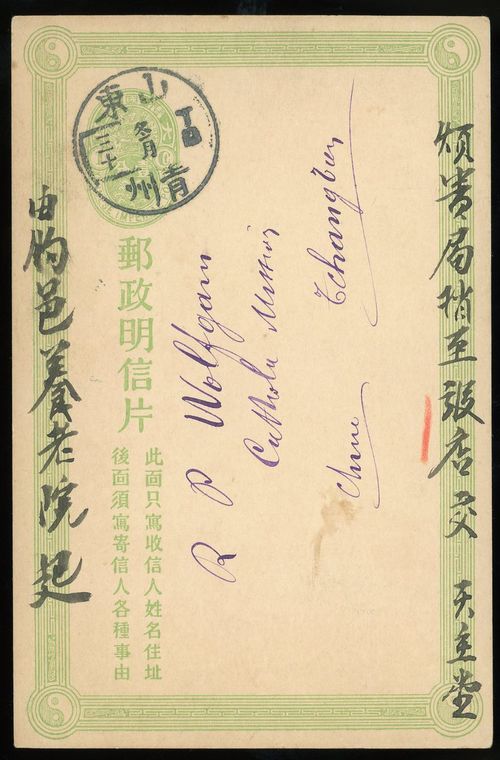 煩貴局捎至張店交 天主堂
R P Wolfgam
Catholic Mission
Tchangtien
Chine
山東
青州
郵政明信片
此面只寫收信人姓名住址
後面須寫寄信人各種事由
由朐邑養老院起